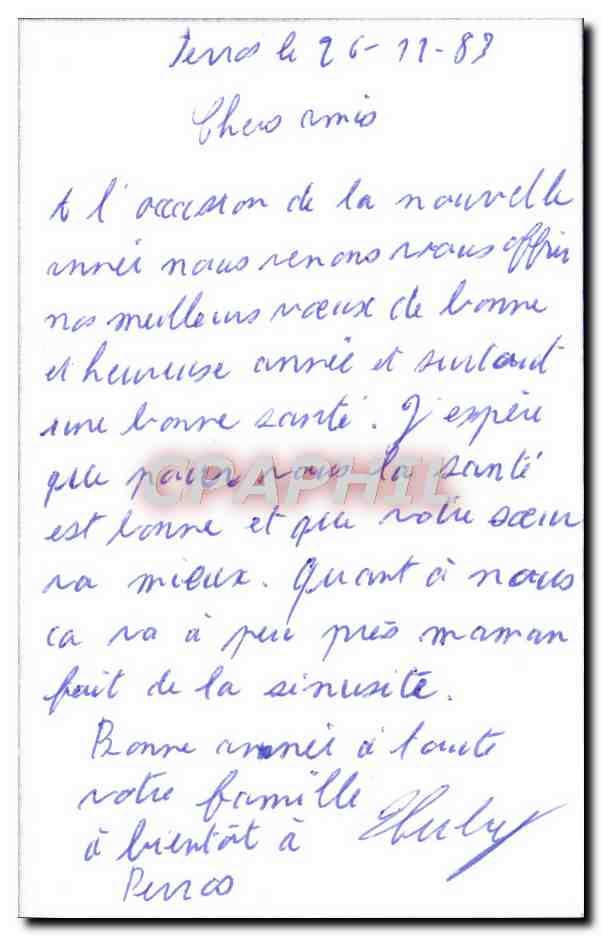 Perros le 26-12-83
Chers amis
A l'occasion de la nouvelle
année nous venons vous offrir
nos meilleurs vœux de bonne
et heureuse année et surtout
une bonne santé. J'espère
que pour vous la santé
CPAPHIL
est bonne et que votre sœur
va mieux. Quant à nous
ça va à peu près maman
fait de la sinusite.
Bonne année à toute
votre famille
à bientôt à
Perros